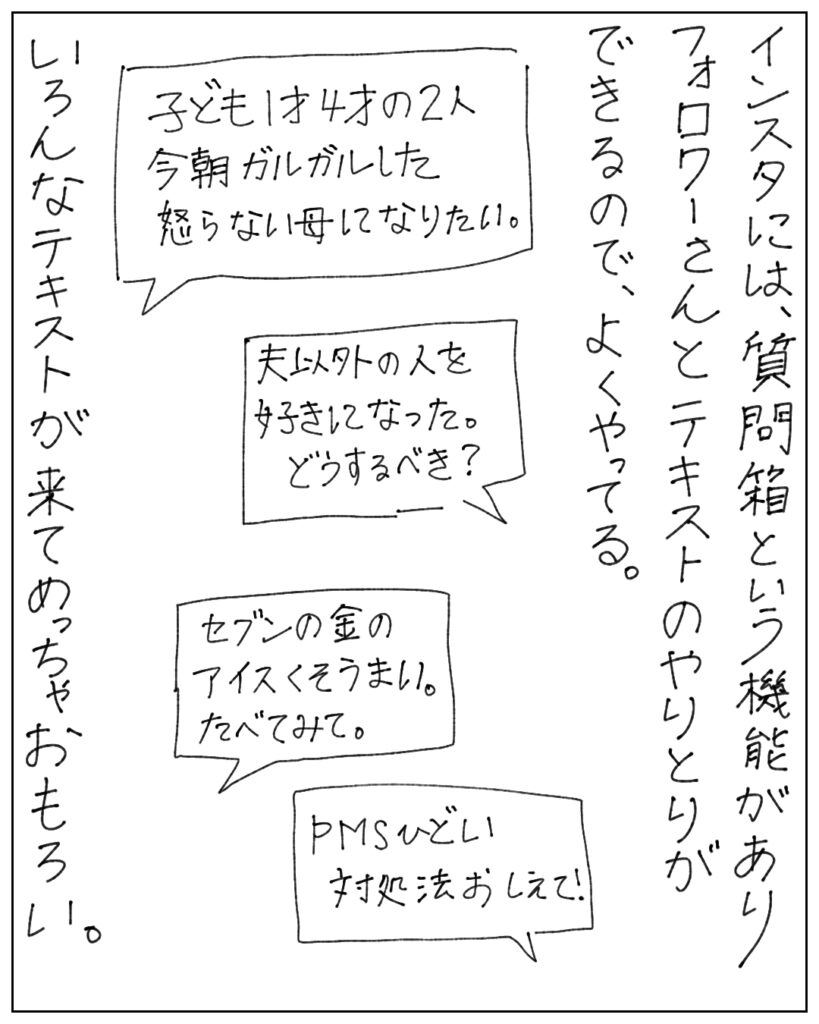 インスタには、質問箱という機能があり
フォロワーさんとテキストのやりとりが
できるので、よくやってる。
子ども1才4才の2人
今朝ガルガルした
怒らない母になりたい。
夫以外の人を
好きになった。
どうするべき?
セブンの金の
アイスくそうまい。
たべてみて。
PMSひどい
対処法おしえて!
いろんなテキストが来てめっちゃおもろい。